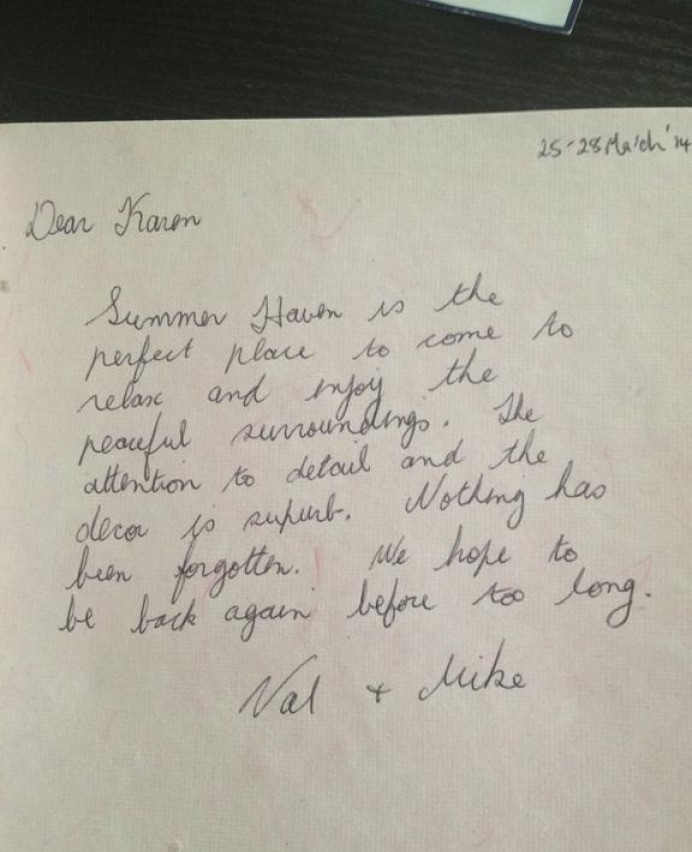 25-28 March '14
Dear Karen
Summer Haven is the
perfect place to come to
relax and enjoy the
peaceful surroundings. The
attention to detail and the
decor is superb. Nothing has
been forgotten. We hope to
be back again before too long.
Val + Mike